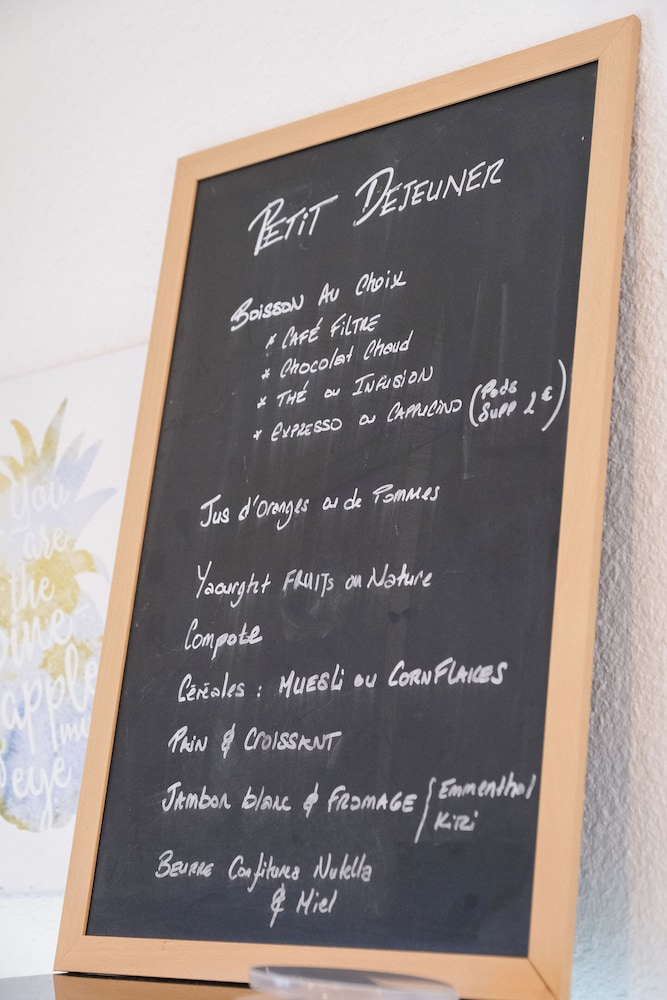 PETIT DEJEUNER
BOISSON AU Choix
* CAFÉ FILTRE
* Chocolat Chaud
* THÉ ou INFUSION
* EXPRESSO ou CAPPUCINO (PODS
SUPP 2€)
Jus d'Oranges ou de Pommes
Yaourght FRUITS ou Nature
Compote
Céréales : MUESLI ou CORNFLAKES
PAIN & CROISSANT
JAMBON blanc & FROMAGE { Emmenthal
KiRi
BEURRE Confitures Nutella
& Miel
You
are
the
pine
apple
my
eye